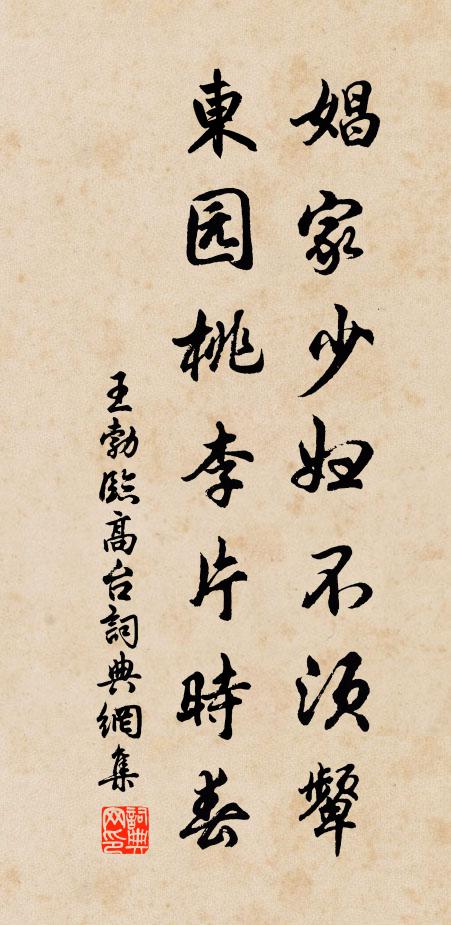 娼家少妇不须顰
東园桃李片時春
王勃臨高台詞典網集
詞典网印